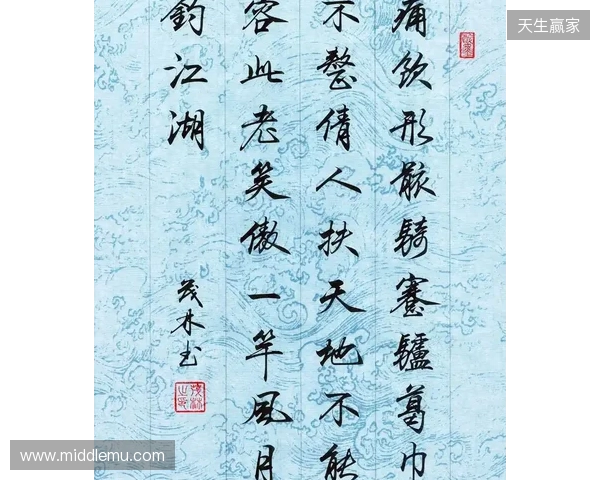 天生赢家
痛飲形骸騎蹇驢葛巾
不整倩人扶天地不能
容此老笑傲一竿風月
釣江湖
茂林书
www.middlemu.com